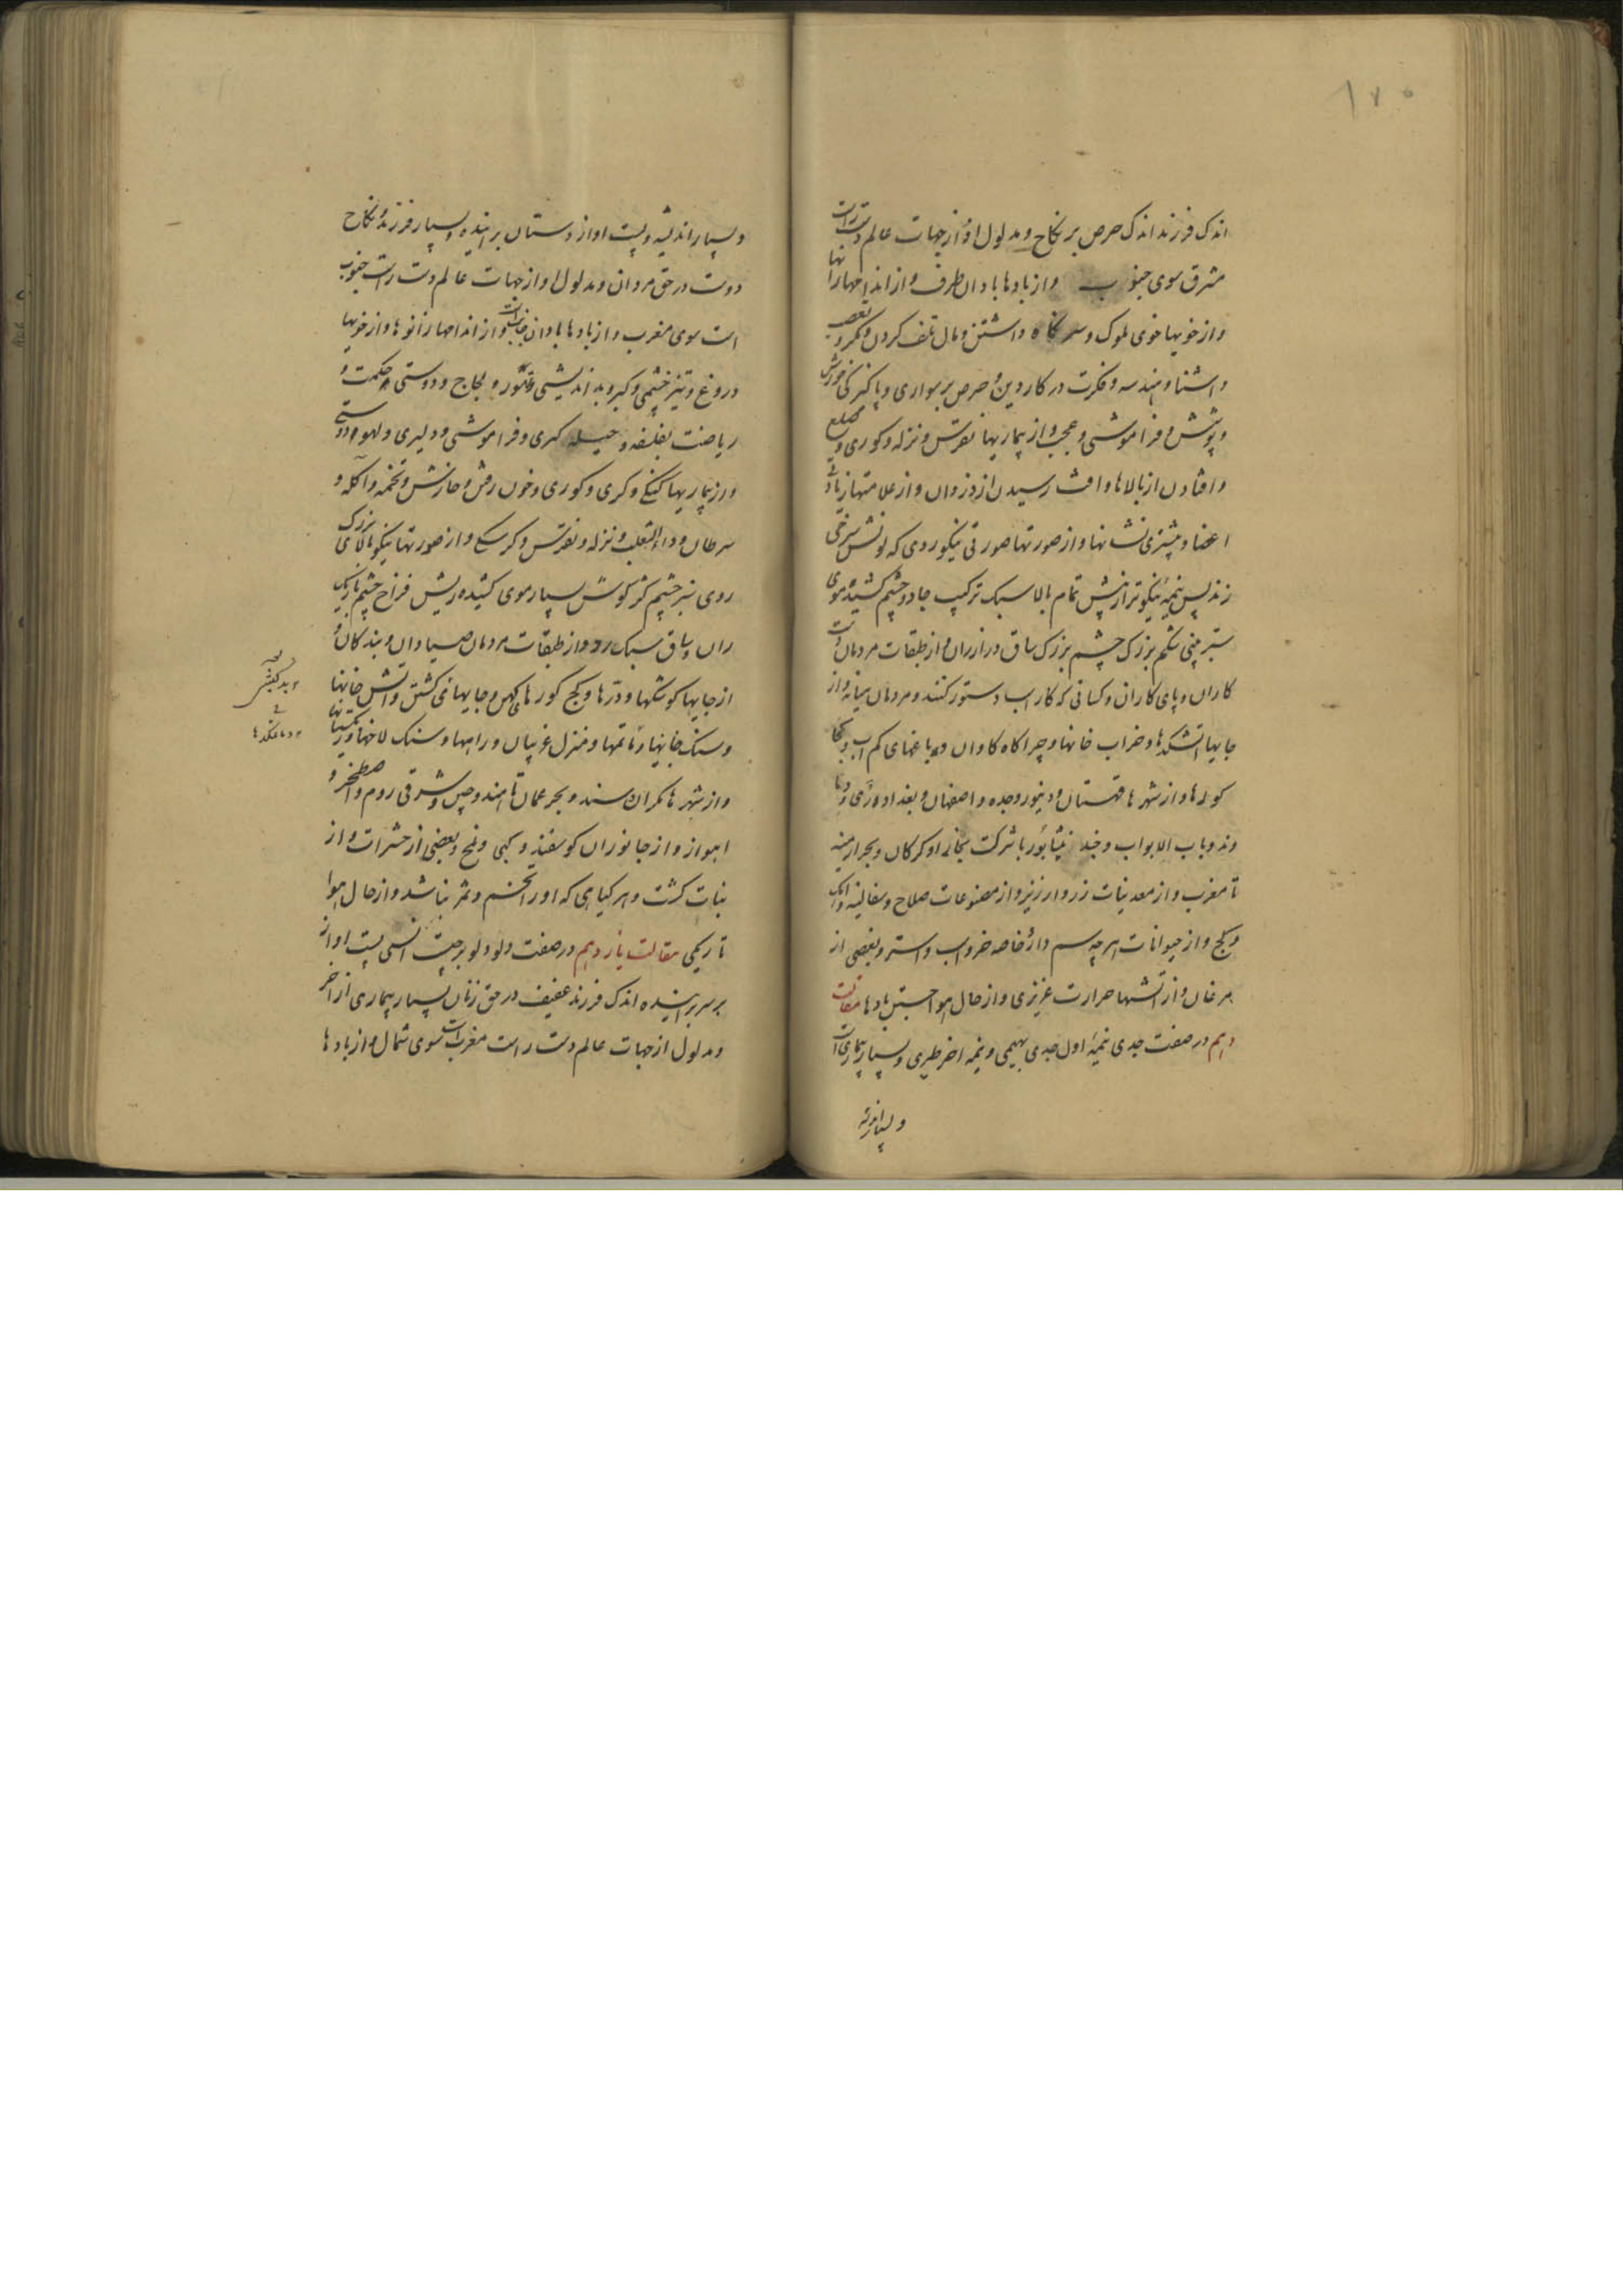 ۱۷۰
اندک فرزند اندک حرص بر نکاح و مدلول او از جهات عالم دست راست
مشرق سوی جنوب و از بادها باد ان طرف و از اندامها رانها
و از خویها خوی ملوک و سر نکاه داشتن و مال تلف کردن و مکر و تعصب
و اشنا و هندسه و فکرت در کار دین و حرص بر سواری و پاکیزکی خورش
و پوشش و فراموشی و عجب و از بیماریها نقرس و نزله و کوری و صلع
و افتادن از بالاها و افت رسیدن از دزدان و از علامتها زیادتی
اعضا و بیشتری نشانها و از صورتها صورتی نیکوروی که لونش سرخی
زند پس نیمه نیکوتر از پیش تمام بالا سبک ترکیب جادو چشم کشیده موی
ستبر بینی شکم بزرک چشم بزرک ساق دراز ران و از طبقات مردمان دست
کاران و پای کاران و کسانی که کار اب دستور کنند و مردمان میانه و از
جایها اتشکدها و خراب خانها و چراکاه کاوان و باغهای کم اب و کجا
کولها و از شهرها قهستان و دینور و جده و اصفهان و بغداد و ری و دنبا
وند و باب الابواب و جند نیشابور با شرکت بخارا و کرکان و بحر ارمینه
تا مغرب و از معدنیات زر و ارزیز و از مصنوعات صلاح و سفالینه و اهک
و کج و از حیوانات هر چه سم دارد خاصه خر و اسب و استر و بعضی از
مرغان و از اتشها حرارت غریزی و از حال هوا جستن بادها مقالت
دهم در صفت جدی نیمه اول جدی بهیمی و نیمه اخر طیری و بسیار بیماری است
و بسیار اندیشه
و بسیار اندیشه و پست اواز دستان بر اینده و بسیار فرزند و نکاح
دوست در حق مردان و مدلول او از جهات عالم دست راست جنوب
است سوی مغرب و از بادها باد ان جانب است و از اندامها زانوها و از خویها
دروغ و تیز خشمی و کبر و بد اندیشی و فتور و لجاج و دوستی حکمت و
ریاضت بفلسفه و حیله کری و فراموشی و دلیری و لهو دوستی
و از بیماریها کنکی و کری و کوری و خون رفتن و خارش و تخمه و اکله و
سرطان و داءالثعلب و نزله و نقرس و کرسکی و از صورتها نیکو بالای بزرک
روی تیز چشم کژ کوش بسیار موی کشیده ریش فراخ چشم باریک
ران و ساق سبک رو و از طبقات مردمان صیادان و بندکان و
از جایها کوشکها و درها و کنج کورهای کهن و جایهای کشتن و اتش خانها
و سنک خانها و ماتمها و منزل غریبان و راهها و سنک لاخها و ریکستانها
و از شهرها مکران و سند و بحر عمان تا هند و چین و شرقی روم و اصطخر و
اهواز و از جانوران کوسفند و کبی و ملخ و بعضی از حشرات و از
نبات کشت و هر کیاهی که او را تخم و ثمر نباشد و از حال هوا
تاریکی مقالت یازدهم در صفت دلو دلو برجیست انسی پست اوازه
بر سر بر اینده اندک فرزند عفیف در حق زنان بسیار بیماری از اخر
و مدلول از جهات عالم دست راست مغرب است سوی شمال و از بادها